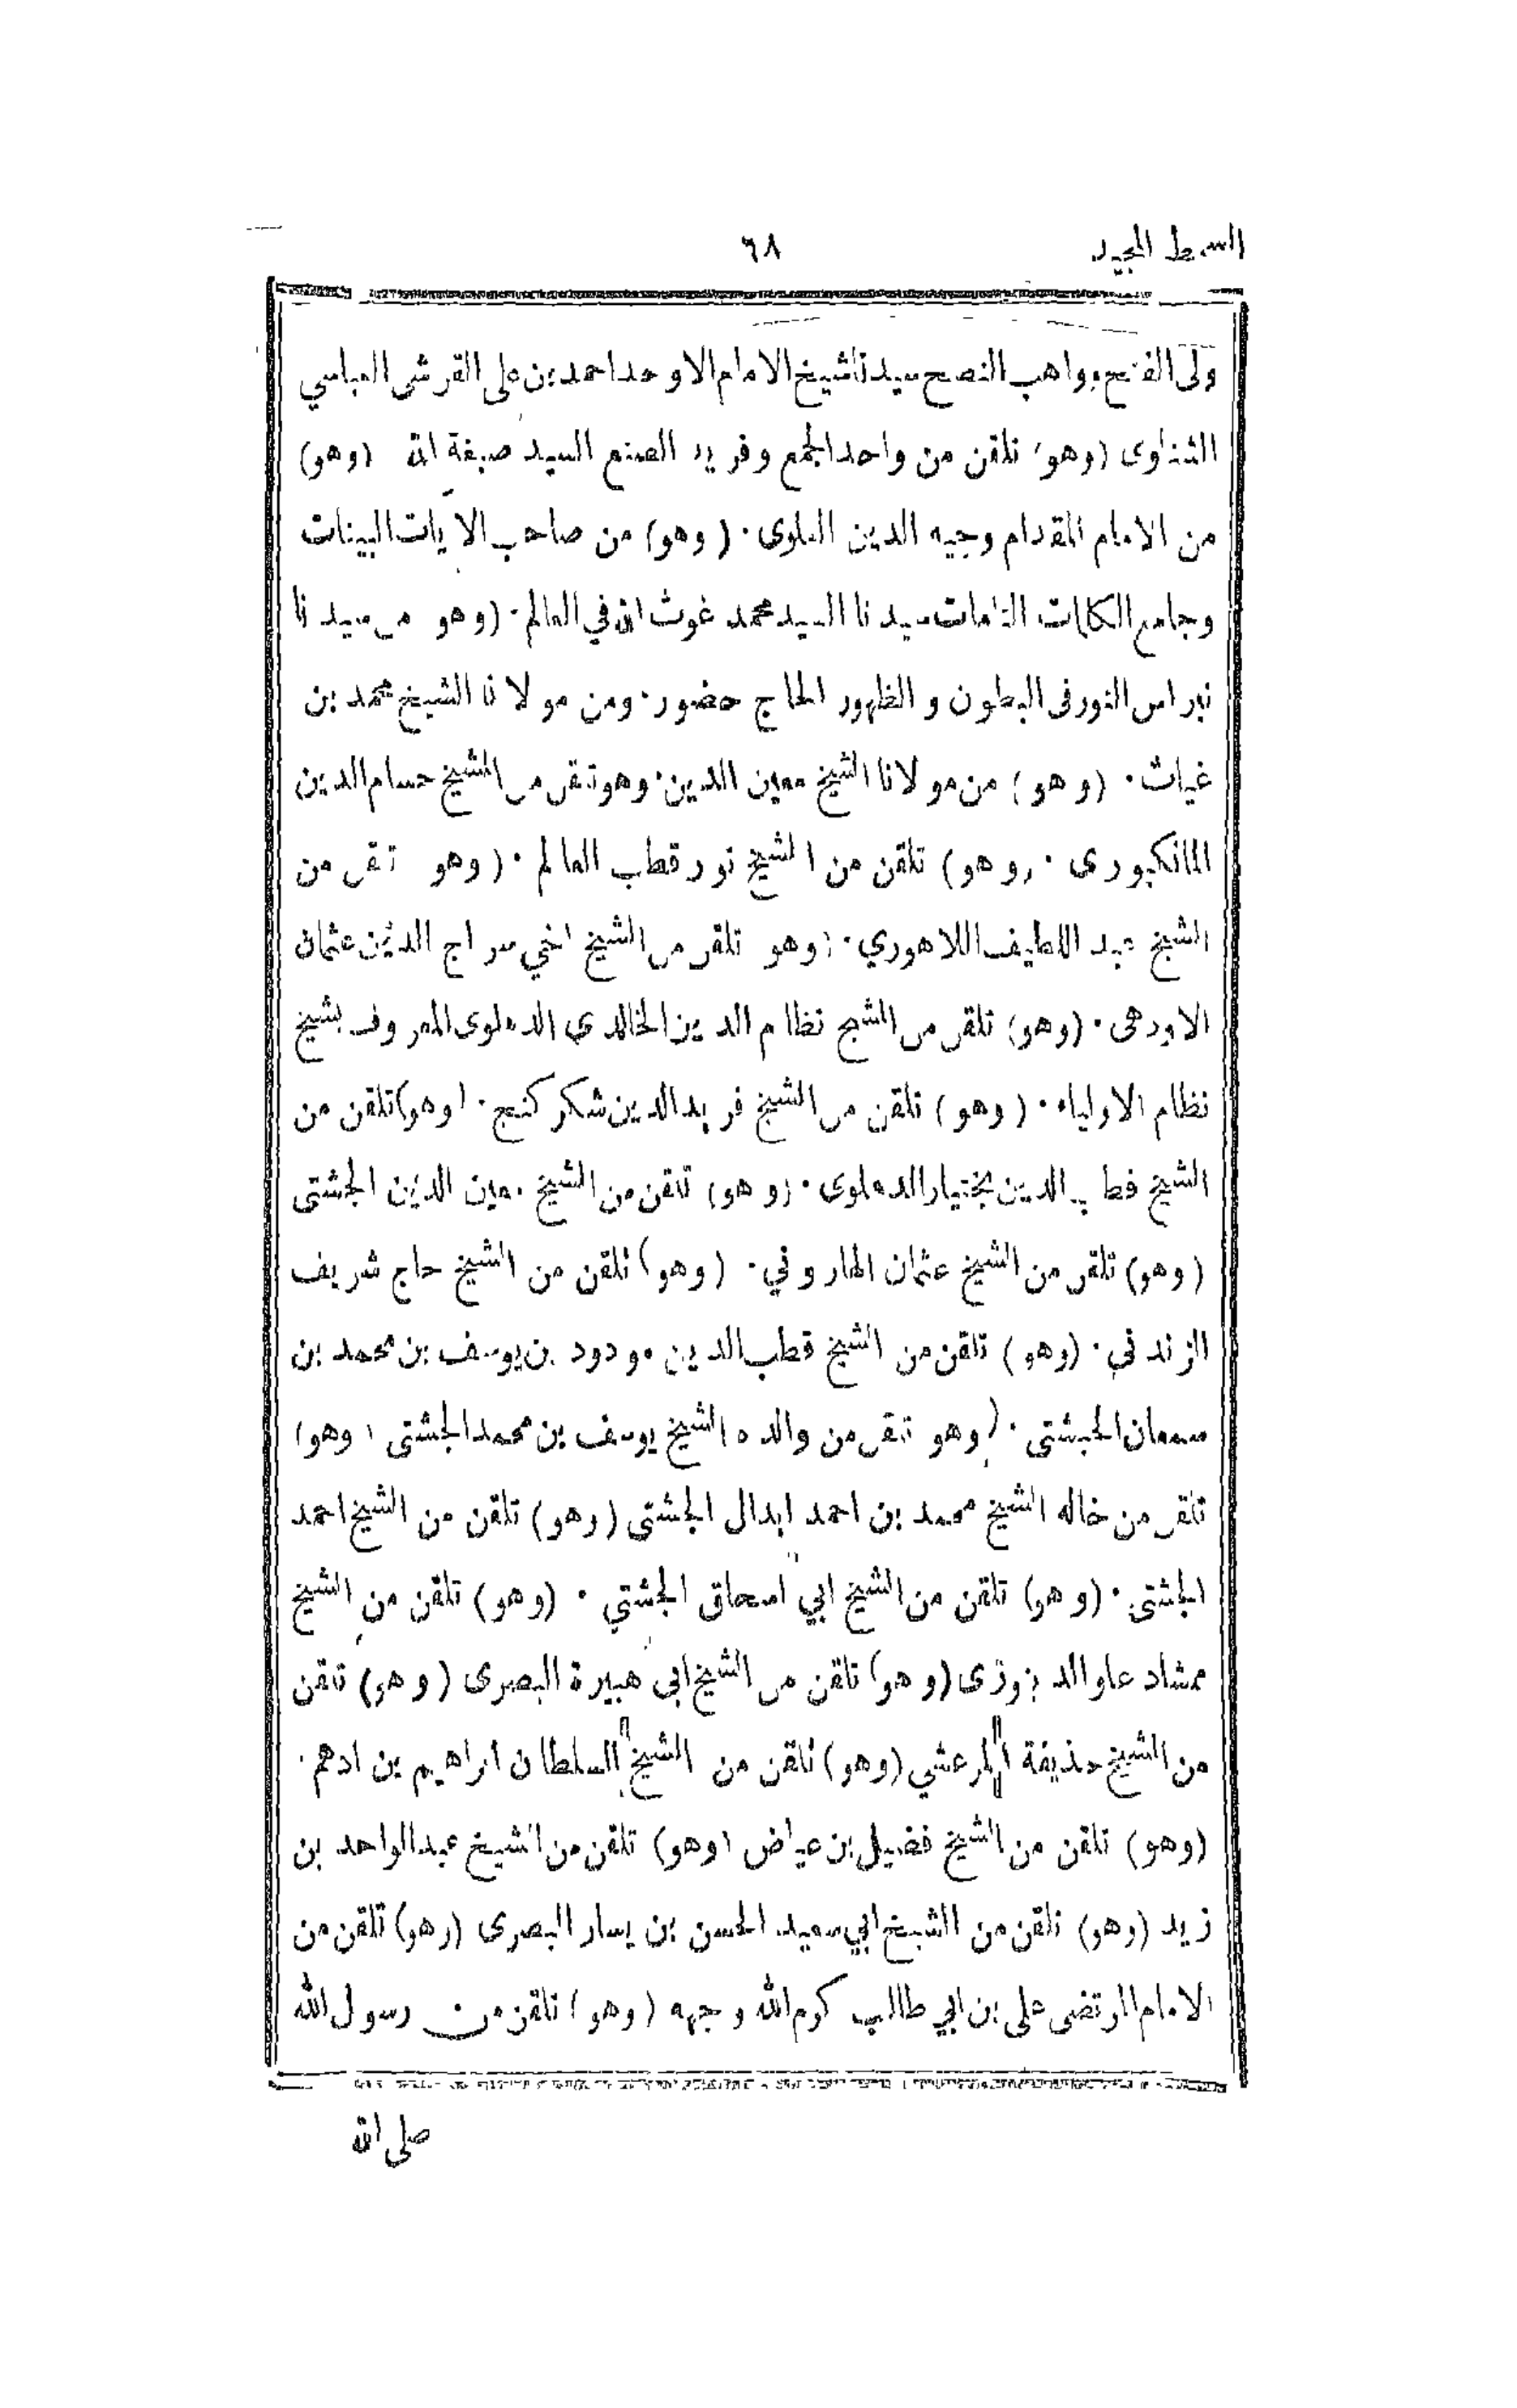 السمط المجيد ٦٨
ولى الفتح وواهب النصح سيدنا شيخ الامام الاوحد احمد بن على القرشى العباسي
الشناوى (وهو) تلقن من واحد الجمع وفريد الصنع السيد صبغة الله (وهو)
من الامام المقدام وجيه الدين العلوى ٠ (وهو) من صاحب الآيات البينات
وجامع الكلمات التامات سيدنا السيد محمد غوث الله في العالم ٠ (وهو من سيدنا
نبراس النور فى البطون والظهور الحاج حضور ٠ ومن مولانا الشيخ محمد بن
غياث ٠ (وهو) من مولانا الشيخ معين الدين ٠ وهو تلقن من الشيخ حسام الدين
المانكبورى ٠ (وهو) تلقن من الشيخ نور قطب العالم ٠ (وهو تلقن من
الشيخ عبد اللطيف اللاهوري ٠ (وهو تلقن من الشيخ اخي سراج الدين عثمان
الاودهى ٠ (وهو) تلقن من الشيخ نظام الدين الخالدي الدهلوى المعروف بشيخ
نظام الاولياء ٠ (وهو) تلقن من الشيخ فريد الدين شكر كنج ٠ (وهو) تلقن من
الشيخ قطب الدين بختيار الدهلوى ٠ (وهو) تلقن من الشيخ معين الدين الجشتى
(وهو) تلقن من الشيخ عثمان الهاروني ٠ (وهو) تلقن من الشيخ حاج شريف
الزندني ٠ (وهو) تلقن من الشيخ قطب الدين مودود بن يوسف بن محمد بن
سمعان الجشتى ٠ (وهو تلقن من والده الشيخ يوسف بن محمد الجشتى (وهو)
تلقن من خاله الشيخ محمد بن احمد ابدال الجشتى (وهو) تلقن من الشيخ احمد
الجشتى ٠ (وهو) تلقن من الشيخ ابي اسحاق الجشتي ٠ (وهو) تلقن من الشيخ
ممشاد علو الدينورى (وهو) تلقن من الشيخ ابى هبيرة البصرى (وهو) تلقن
من الشيخ حذيفة المرعشي (وهو) تلقن من الشيخ السلطان ابراهيم بن ادهم ٠
(وهو) تلقن من الشيخ فضيل بن عياض (وهو) تلقن من الشيخ عبدالواحد بن
زيد (وهو) تلقن من الشيخ ابي سعيد الحسن بن يسار البصرى (وهو) تلقن من
الامام المرتضى على بن ابي طالب كرم الله وجهه (وهو) تلقن من رسول الله
صلى الله